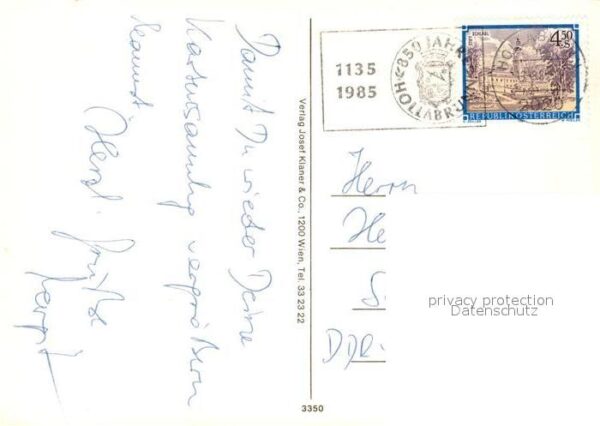 Damit Du wieder Deine
Kartensammlg vergrößern
kannst
Herzl. Grüße
1135
1985
850 JAHRE
HOLLABRUNN
4.50
S
STIFT VORAU
REPUBLIK ÖSTERREICH
Verlag Josef Klaner & Co., 1200 Wien, Tel. 33 23 22
Herrn
He
S
DDR-
privacy protection
Datenschutz
3350